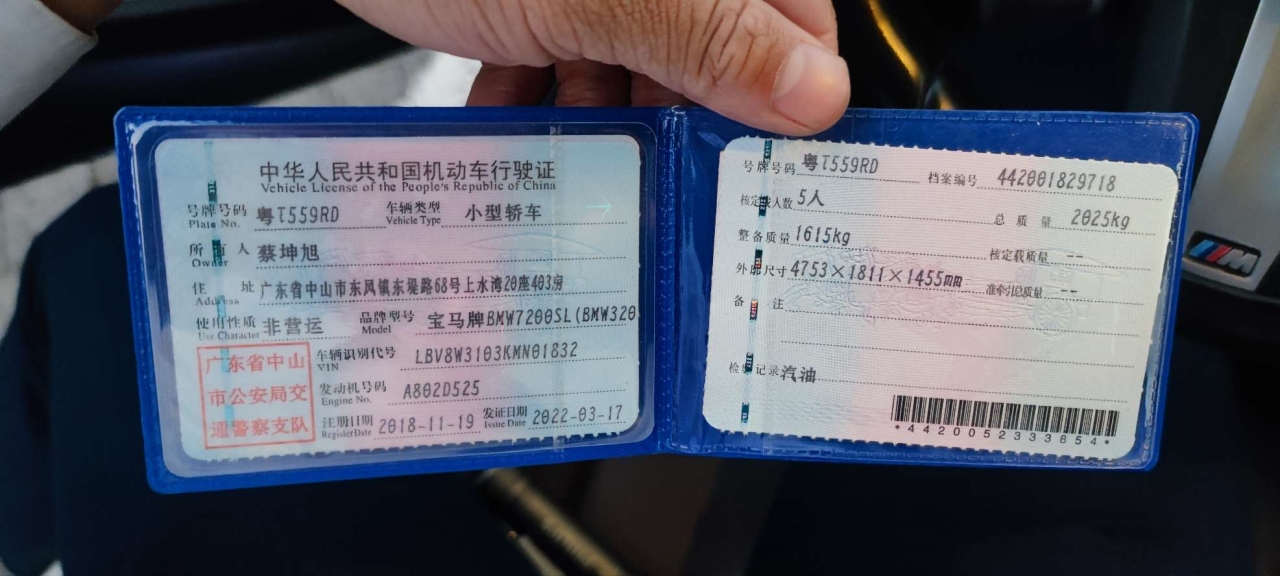 中华人民共和国机动车行驶证
Vehicle License of the People's Republic of China
号牌号码 粤T559RD 车辆类型 小型轿车
Plate No. Vehicle Type
所有人 蔡坤旭
Owner
住址 广东省中山市东凤镇东堤路68号上水湾20座403房
Address
使用性质 非营运 品牌型号 宝马牌BMW7200SL(BMW320
Use Character Model
广东省中山
市公安局交
通警察支队
车辆识别代号 LBV8W3103KMN01832
VIN
发动机号码 A802D525
Engine No.
注册日期 2018-11-19 发证日期 2022-03-17
Register Date Issue Date
号牌号码 粤T559RD 档案编号 442001829718
核定载人数 5人 总质量 2025kg
整备质量 1615kg 核定载质量 --
外廓尺寸 4753×1811×1455mm 准牵引总质量 --
备注
检验记录 汽油
*4420052333854*
M